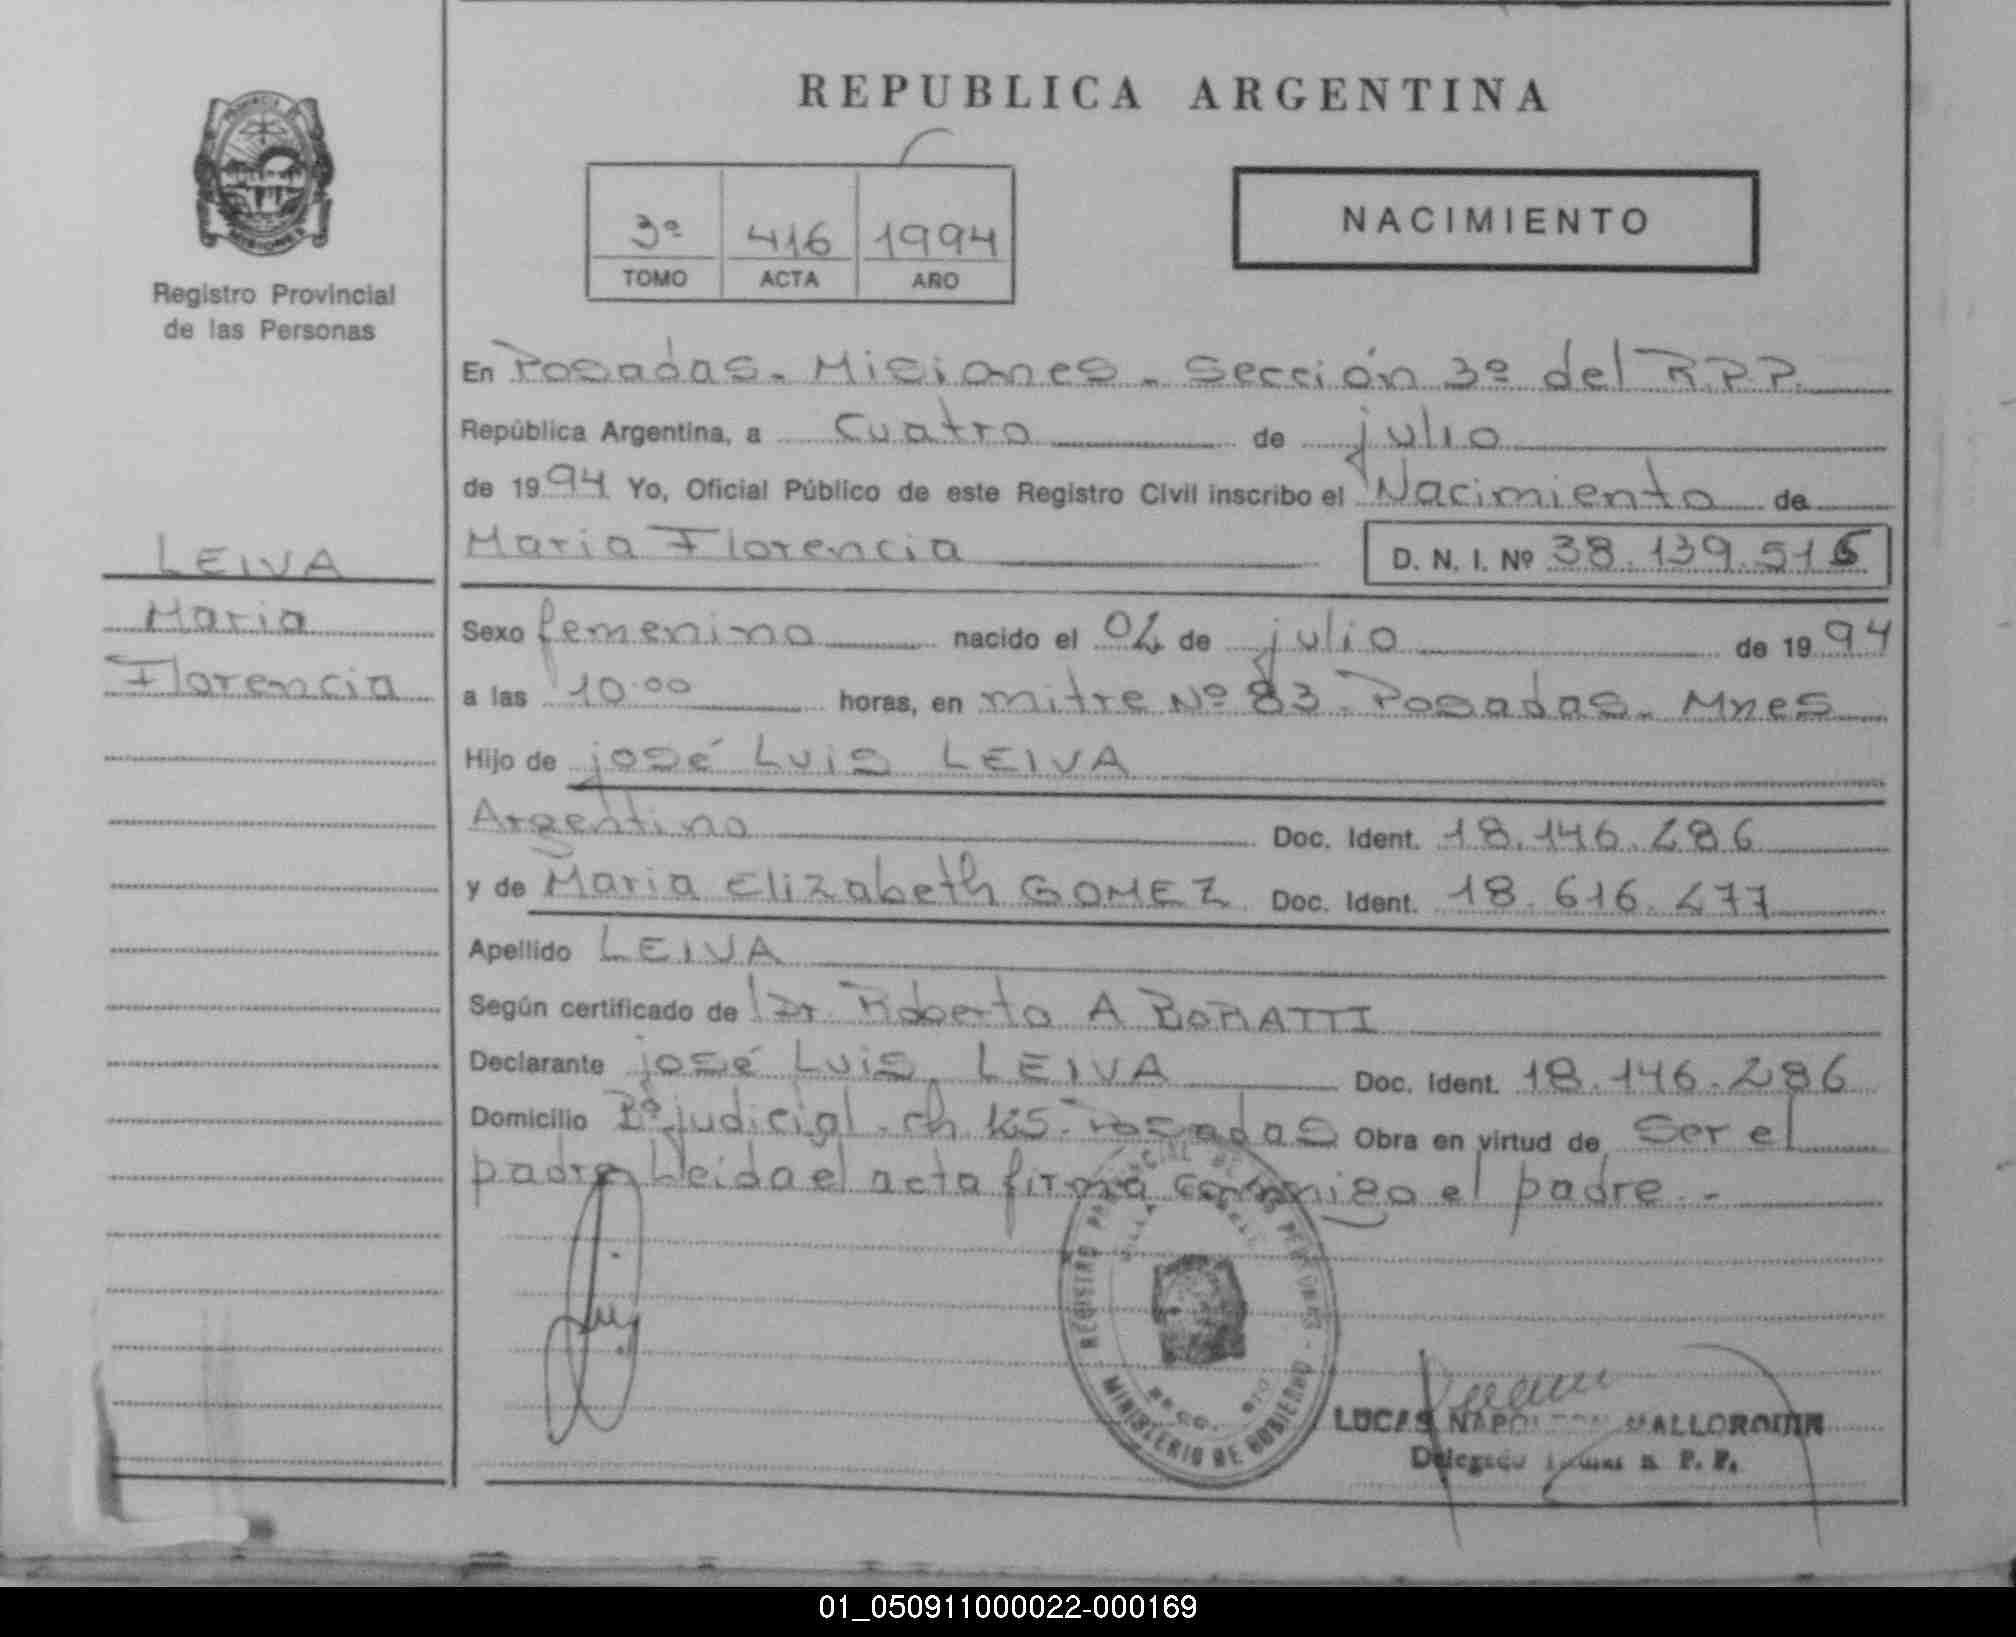 REPUBLICA ARGENTINA
3º 416 1994
TOMO ACTA AÑO
NACIMIENTO
MISIONES
Registro Provincial
de las Personas
LEIVA
Maria
Florencia
En Posadas - Misiones - Sección 3º del R.P.P.
República Argentina, a cuatro de julio
de 1994 Yo, Oficial Público de este Registro Civil inscribo el Nacimiento de
Maria Florencia D. N. I. Nº 38.139.516
Sexo femenino nacido el 04 de julio de 1994
a las 10.00 horas, en mitre Nº 83 - Posadas - Mnes
Hijo de josé Luis LEIVA
Argentino Doc. Ident. 18.146.286
y de Maria Elizabeth GOMEZ Doc. Ident. 18.616.277
Apellido LEIVA
Según certificado de Dr. Roberto A BORATTI
Declarante josé Luis LEIVA Doc. Ident. 18.146.286
Domicilio Bº judicial - ch Posadas Obra en virtud de ser el
padre Leida el acta firma conmigo el padre.-
REGISTRO PROVINCIAL DE LAS PERSONAS - MINISTERIO DE GOBIERNO
LUCAS
Delegado R. P. P.
01_050911000022-000169